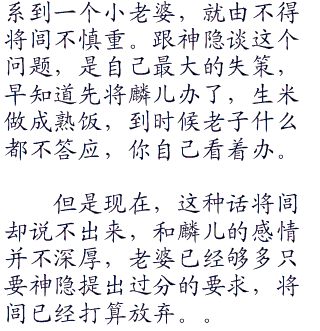 系到一个小老婆，就由不得
将闾不慎重。跟神隐谈这个
问题，是自己最大的失策，
早知道先将麟儿办了，生米
做成熟饭，到时候老子什么
都不答应，你自己看着办。
但是现在，这种话将闾
却说不出来，和麟儿的感情
并不深厚，老婆已经够多只
要神隐提出过分的要求，将
闾已经打算放弃。。